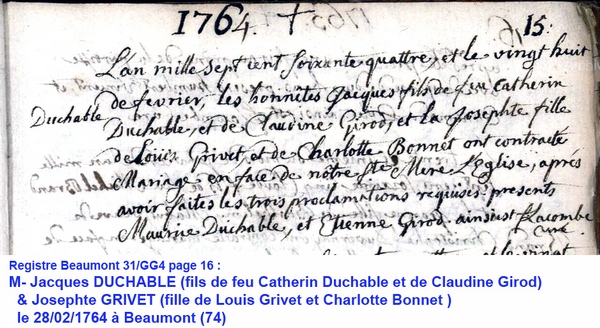 1764. †
15:
L'an mille sept cent soixante quattre, et le vingt huit
de fevrier, les honnêtes Jacques fils de feu Catherin
Duchable
Duchable, et de Claudine Girod, et la Josephte fille
de Louis Grivet, et de Charlotte Bonnet ont contracté
Mariage en face de nôtre Ste Mere L'Eglise, aprés
avoir faites les trois proclamations requises. presents
Maurice Duchable, et Etienne Girod. ainsi est
Lacombe
curé
Registre Beaumont 31/GG4 page 16 :
M- Jacques DUCHABLE (fils de feu Catherin Duchable et de Claudine Girod)
& Josephte GRIVET (fille de Louis Grivet et Charlotte Bonnet )
le 28/02/1764 à Beaumont (74)